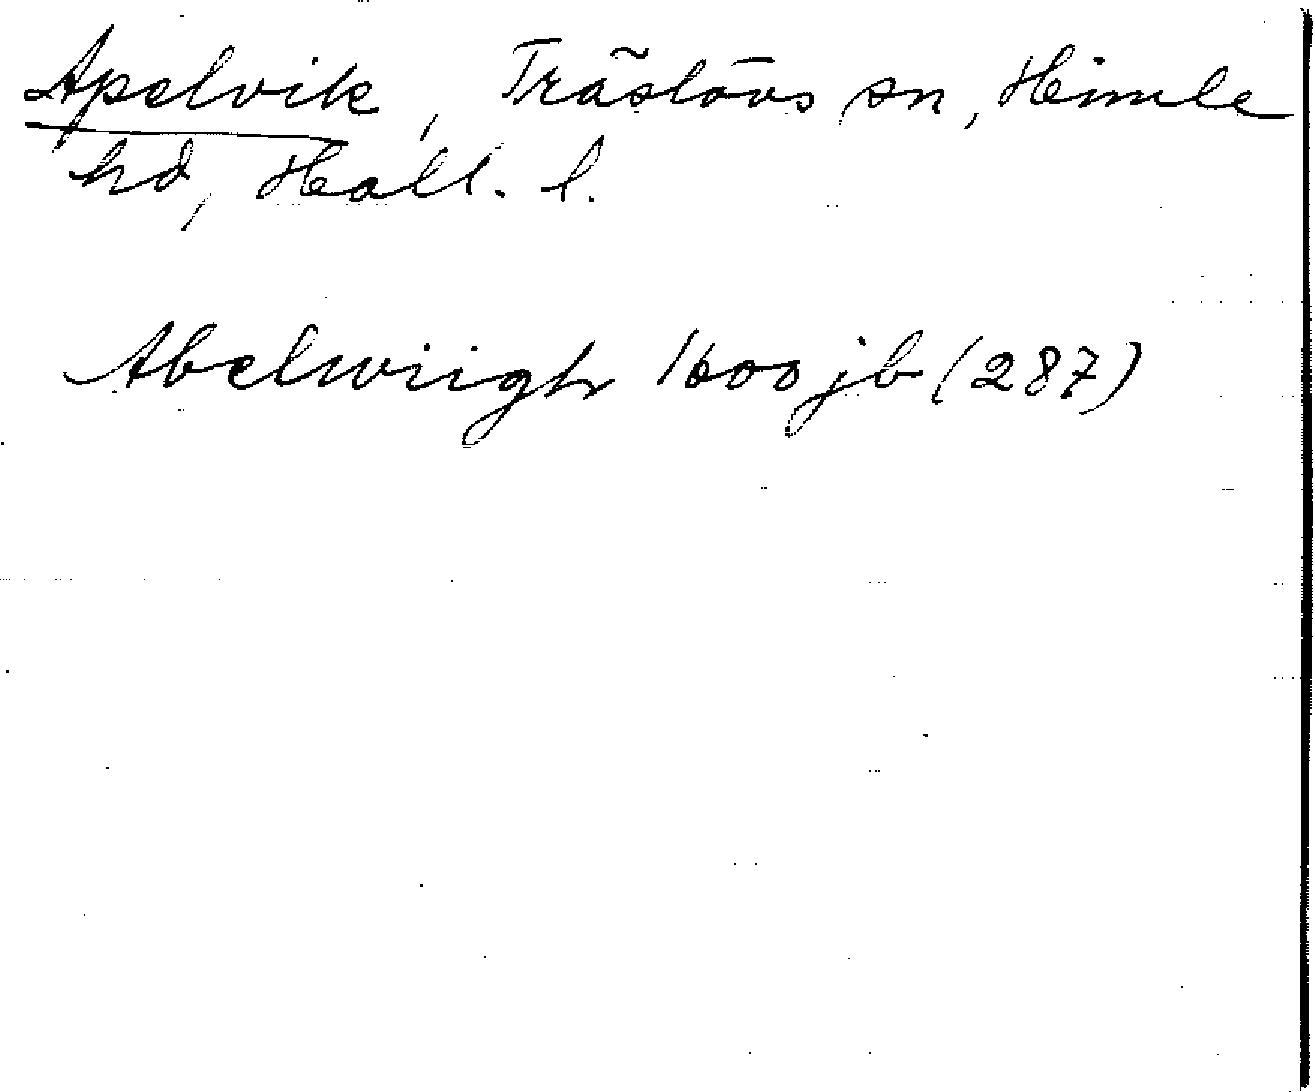 Apelvik, Träslövs sn, Himle
hd, Hall. l.
Abelwiigh 1600 jb (287)